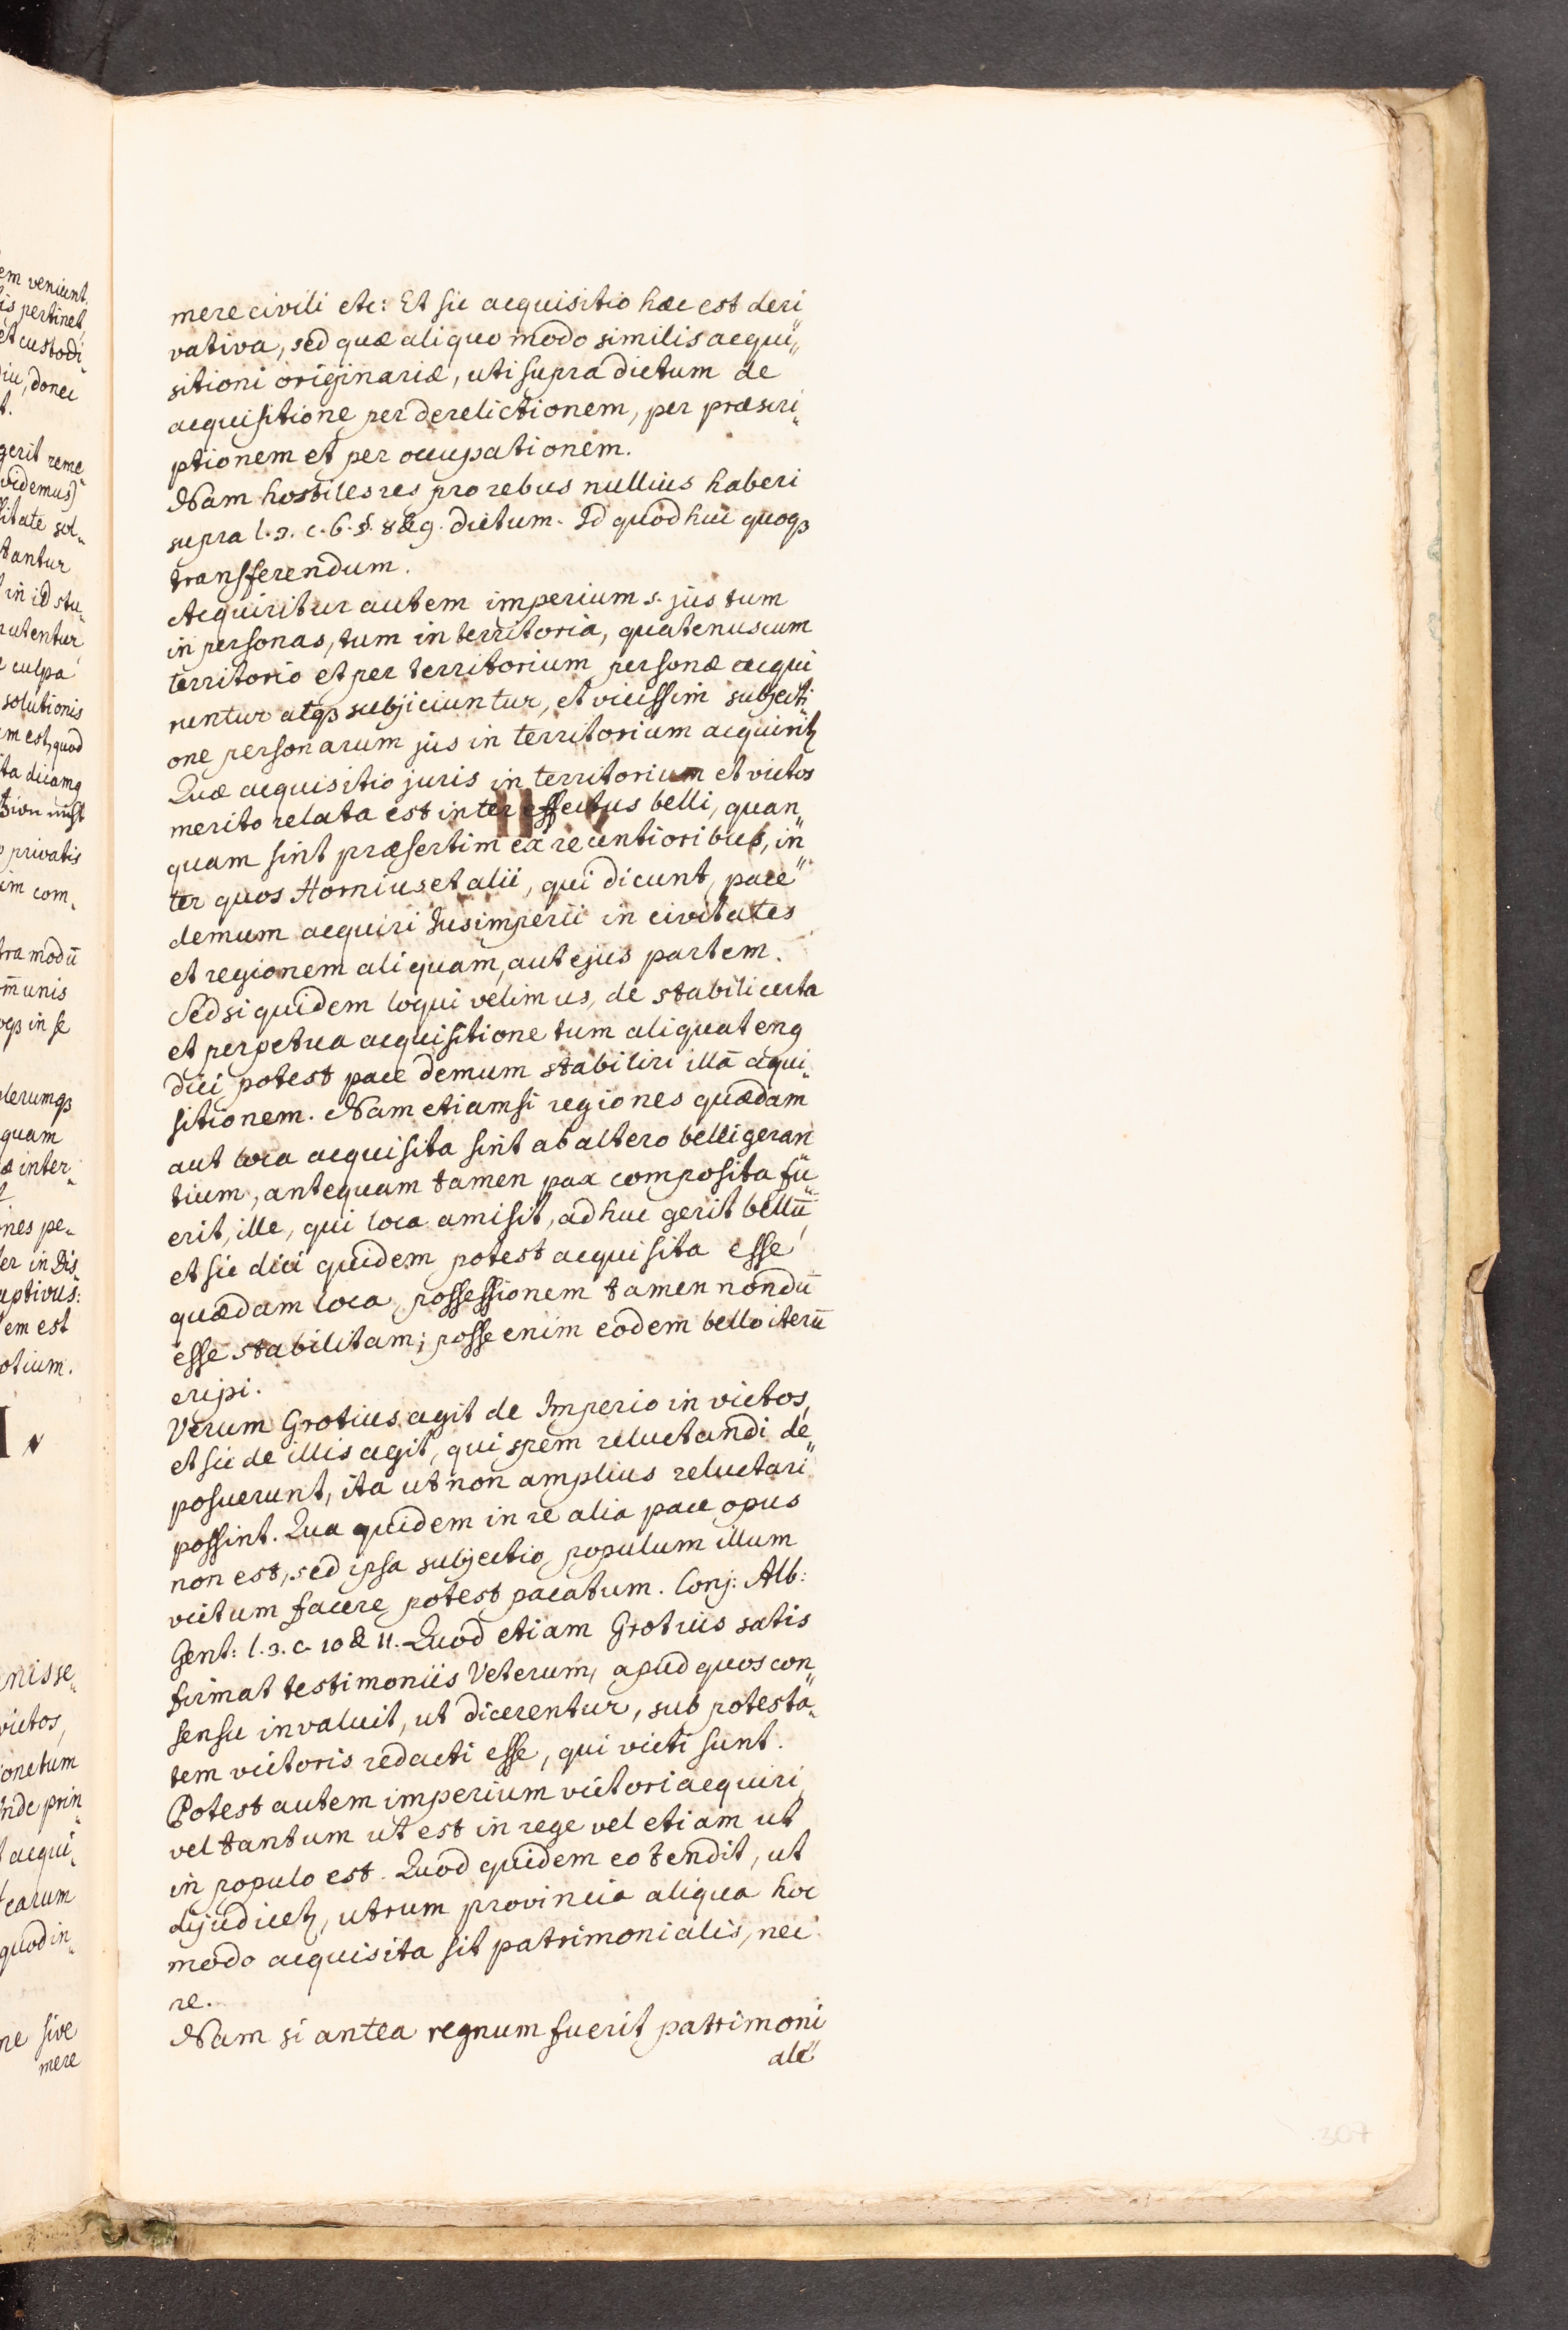 mere civili etc: Et sic acquisitio hæc est deri„
vativa, sed quæ aliquo modo similis acqui„
sitioni originariæ, uti supra dictum de
acquisitione per derelictionem, per præscri„
ptionem et per occupationem.
Nam hostiles res pro rebus nullius haberi
supra l. 3. c. 6. §. 8 & 9. dictum. Id quod huc quoqꝫ
transferendum.
Acquiritur autem imperium s. jus tum
in personas, tum in territoria, quatenus cum
territorio et per territorium personæ acqui
runtur atqꝫ subjiciuntur, et vicissim subjecti„
one personarum jus in territorium acquiritꝫ
Quæ acquisitio juris in territorium et victos
merito relata est inter effectus belli, quan„
quam sint præsertim ex recentioribus, in„
ter quos Hornius et alii, qui dicunt, pace
demum acquiri Jus imperii in civitates
et regionem aliquam, aut ejus partem.
Sed si quidem loqui velimus, de stabili certa
et perpetua acquisitione tum aliquateng
dici potest pace demum stabiliri illā acqui„
sitionem. Nam etiamsi regiones quædam
aut loca acquisita sint ab altero belligeran„
tium, antequam tamen pax composita fu„
erit, ille, qui loca amisit, adhuc gerit bellū,
et sic dici quidem potest acquisita esse
quædam loca, possessionem tamen nondū
esse stabilitam; posse enim eodem bello iterū
eripi.
Verum Grotius agit de Imperio in victos,
et sic de illis agit, qui spem reluctandi de„
posuerunt, ita ut non amplius reluctari
possint. Qua quidem in re alia pace opus
non est, sed ipsa subjectio populum illum
victum facere potest pacatum. Conj: Alb:
Gent: l. 3. c. 10 & 11. Quod etiam Grotius satis
firmat testimoniis Veterum, apud quos con„
sensu invaluit, ut dicerentur, sub potesta„
tem victoris redacti esse, qui victi sunt.
Potest autem imperium victori acquiri,
vel tantum ut est in rege vel etiam ut
in populo est. Quod quidem eo tendit, ut
dijudicetꝫ, utrum provincia aliqua hoc
modo acquisita sit patrimonialis, nec
ne.
Nam si antea regnum fuerit patrimoni„
ale
307